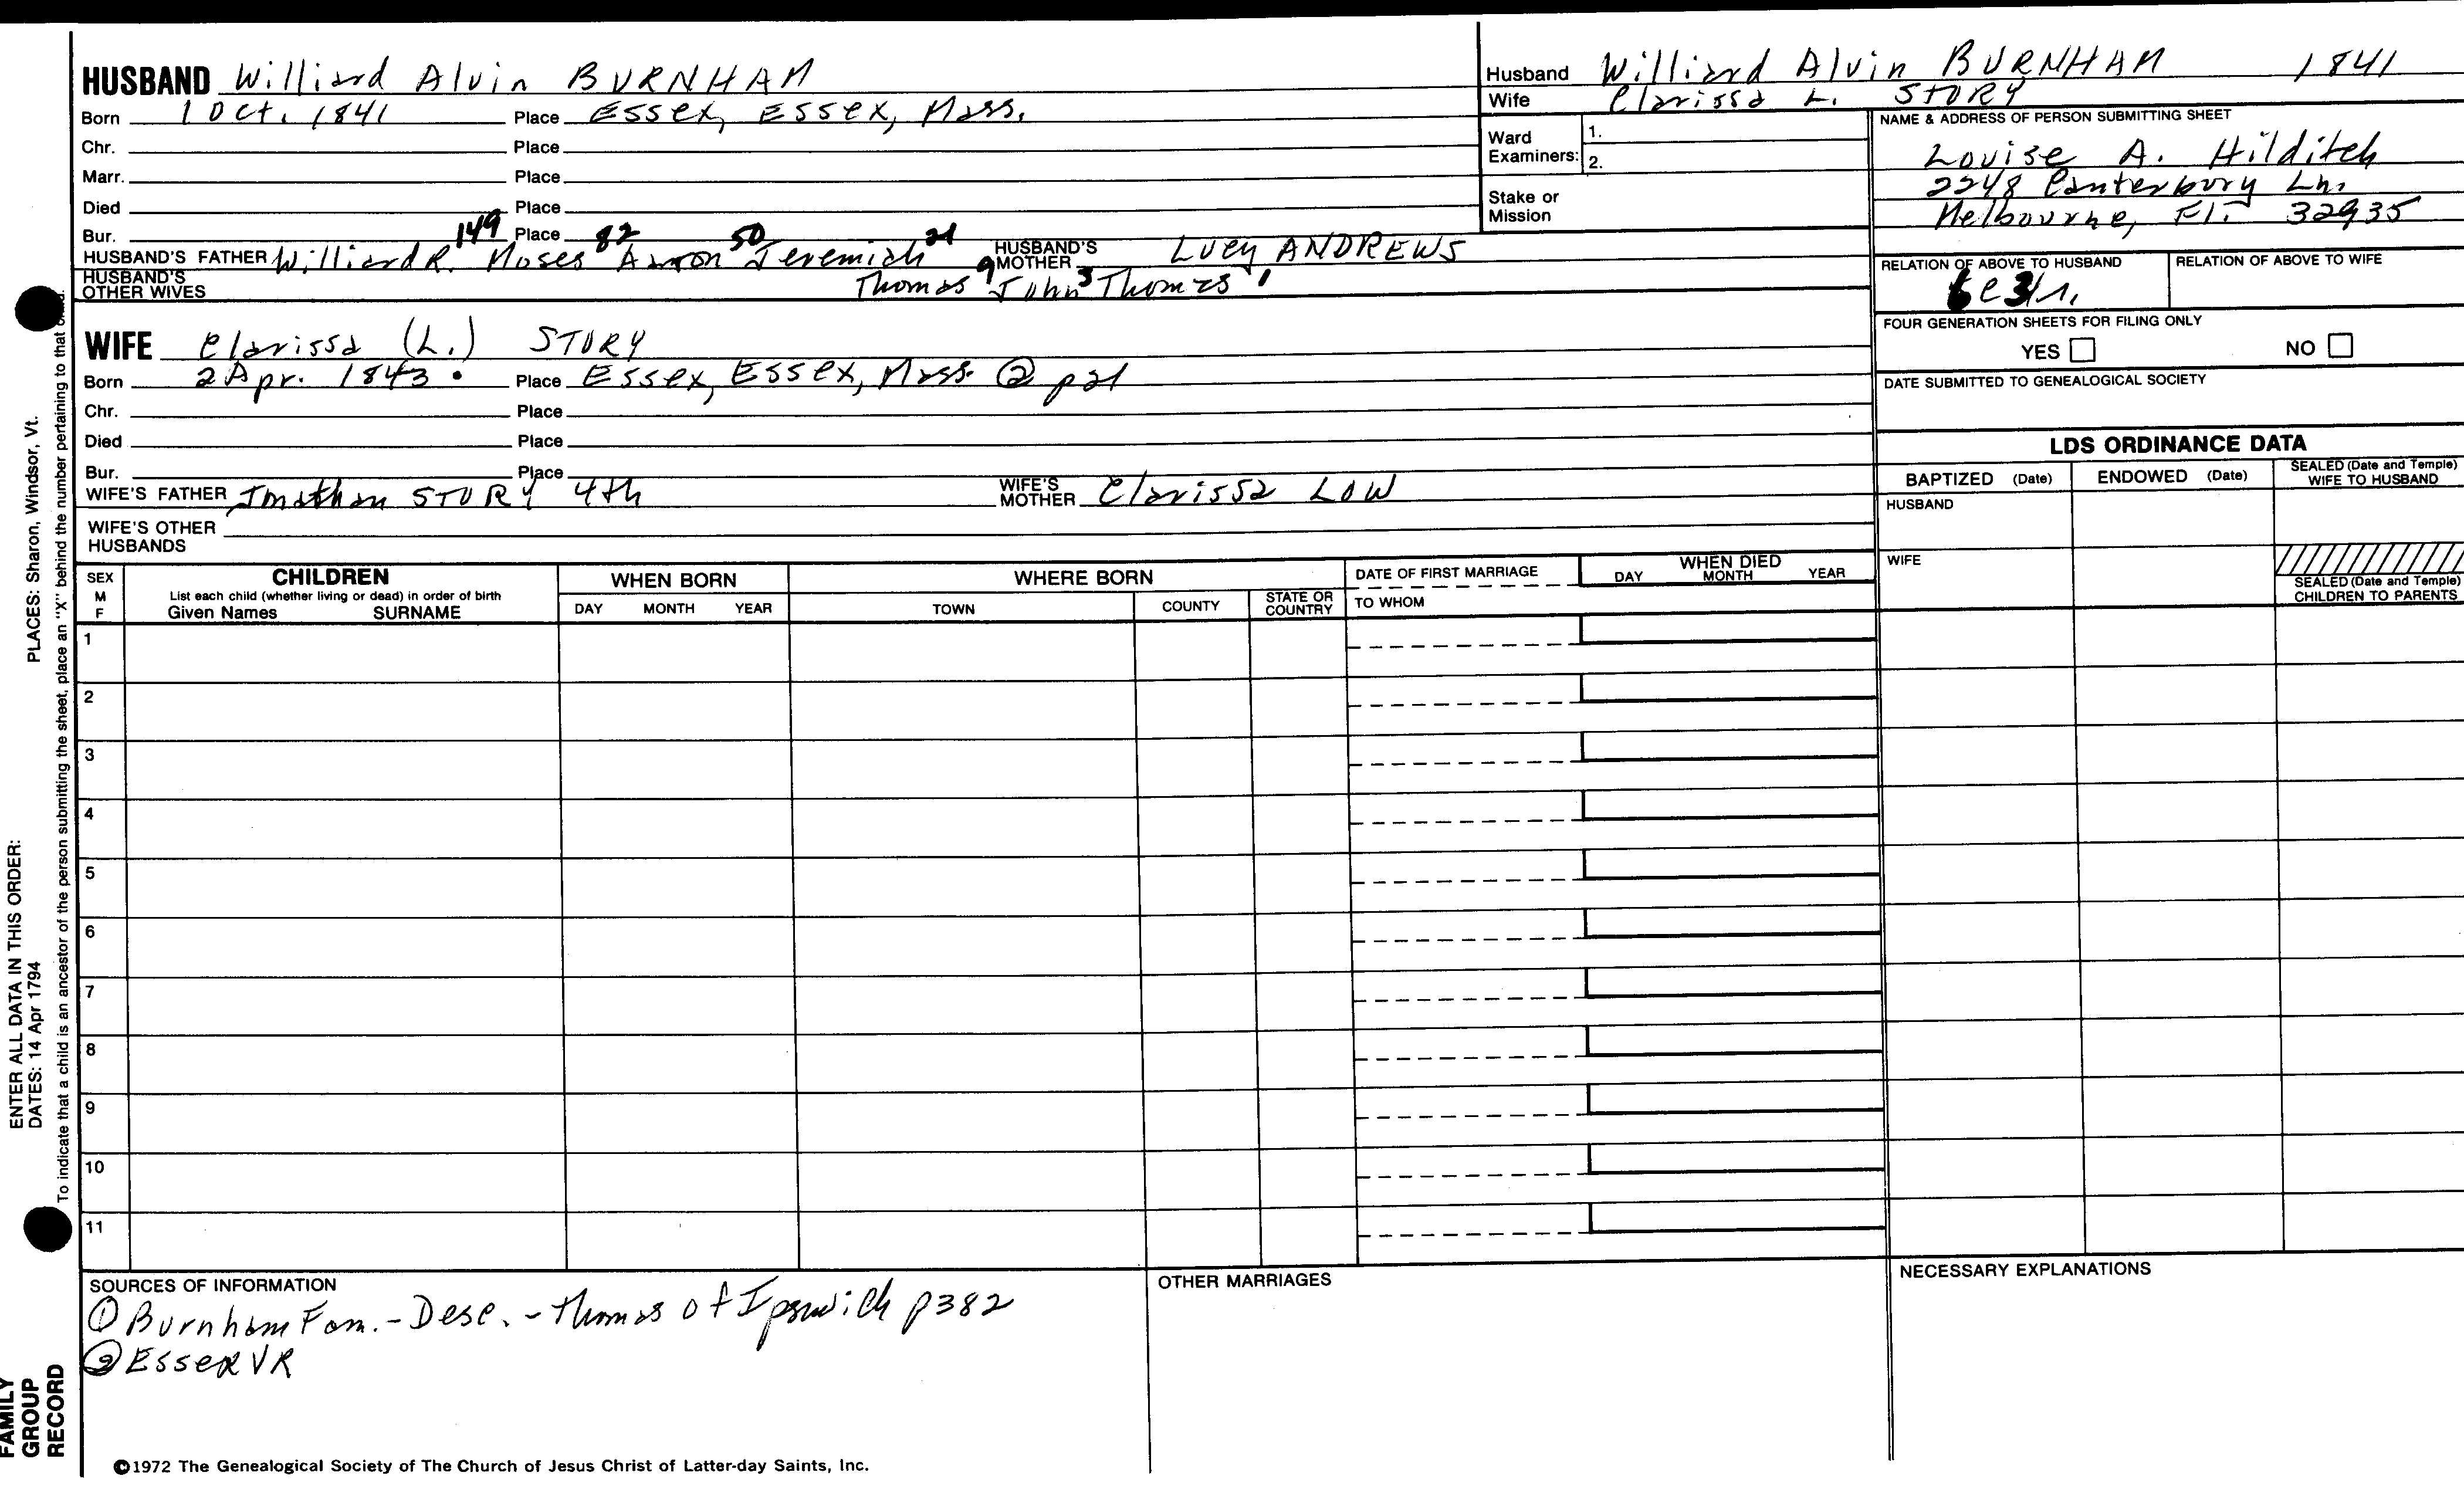 HUSBAND Williard Alvin BURNHAM
Born 1 Oct. 1841 Place Essex, Essex, Mass.
Chr. Place
Marr. Place
Died Place
Bur. Place
149 82 50 21
HUSBAND'S FATHER Williard R. Moses Aaron Jeremiah HUSBAND'S MOTHER Lucy ANDREWS
HUSBAND'S OTHER WIVES Thomas 9 John 3 Thomas 1
WIFE Clarissa (L.) STORY
Born 2 Apr. 1843 Place Essex, Essex, Mass. ② p21
Chr. Place
Died Place
Bur. Place
WIFE'S FATHER Jonathan STORY 4th WIFE'S MOTHER Clarissa LOW
WIFE'S OTHER HUSBANDS
Husband Williard Alvin BURNHAM 1841
Wife Clarissa L. STORY
Ward Examiners: 1.
2.
Stake or Mission
NAME & ADDRESS OF PERSON SUBMITTING SHEET
Louise A. Hilditch
2248 Canterbury Ln.
Melbourne, Fl. 32935
RELATION OF ABOVE TO HUSBAND RELATION OF ABOVE TO WIFE
FOUR GENERATION SHEETS FOR FILING ONLY
YES NO
DATE SUBMITTED TO GENEALOGICAL SOCIETY
LDS ORDINANCE DATA
BAPTIZED (Date) ENDOWED (Date) SEALED (Date and Temple) WIFE TO HUSBAND
HUSBAND
WIFE
SEALED (Date and Temple) CHILDREN TO PARENTS
SEX M F
CHILDREN
List each child (whether living or dead) in order of birth
Given Names SURNAME
WHEN BORN
DAY MONTH YEAR
WHERE BORN
TOWN COUNTY STATE OR COUNTRY
DATE OF FIRST MARRIAGE
TO WHOM
WHEN DIED
DAY MONTH YEAR
1
2
3
4
5
6
7
8
9
10
11
SOURCES OF INFORMATION
① Burnham Fam. - Desc. - Thomas of Ipswich p382
② Essex VR
OTHER MARRIAGES
NECESSARY EXPLANATIONS
©1972 The Genealogical Society of The Church of Jesus Christ of Latter-day Saints, Inc.
ENTER ALL DATA IN THIS ORDER:
DATES: 14 Apr 1794 PLACES: Sharon, Windsor, Vt.
To indicate that a child is an ancestor of the person submitting the sheet, place an "X" behind the number pertaining to that
FAMILY
GROUP
RECORD